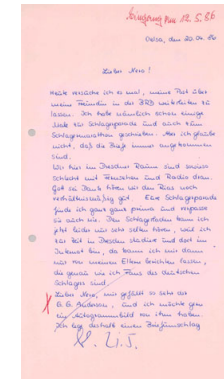 12.5.86
Oelsa, den 20.04.86
Lieber Nero!
Heute versuche ich es mal, meine Post über
meine Freundin in der BRD weiterleiten zu
lassen. Ich habe nämlich schon einige
Male für Schlagerparade und auch zum
Schlagermarathon geschrieben. Aber ich glaube
nicht, daß die Briefe immer angekommen
sind.
Wir hier im Dresdner Raum sind
schlecht mit Fernsehen und Radio dran.
Gott sei Dank hören wir den Rias noch
verhältnismäßig gut. Eine Schlagerparade
finde ich ganz prima und verpasse
sie auch nie. Den Schlagerladen kann ich
jetzt leider nur sehr selten hören, weil ich
zur Zeit in Dresden studiere und dort im
Internat bin, da kann ich mir dann
nur von meinen Eltern berichten lassen,
die genau wie ich Fans des deutschen
Schlagers sind.
Lieber Nero, mir gefällt so sehr der
und ich möchte gern
ein Autogrammbild von ihm haben.
Ich leg deshalb einen Briefumschlag